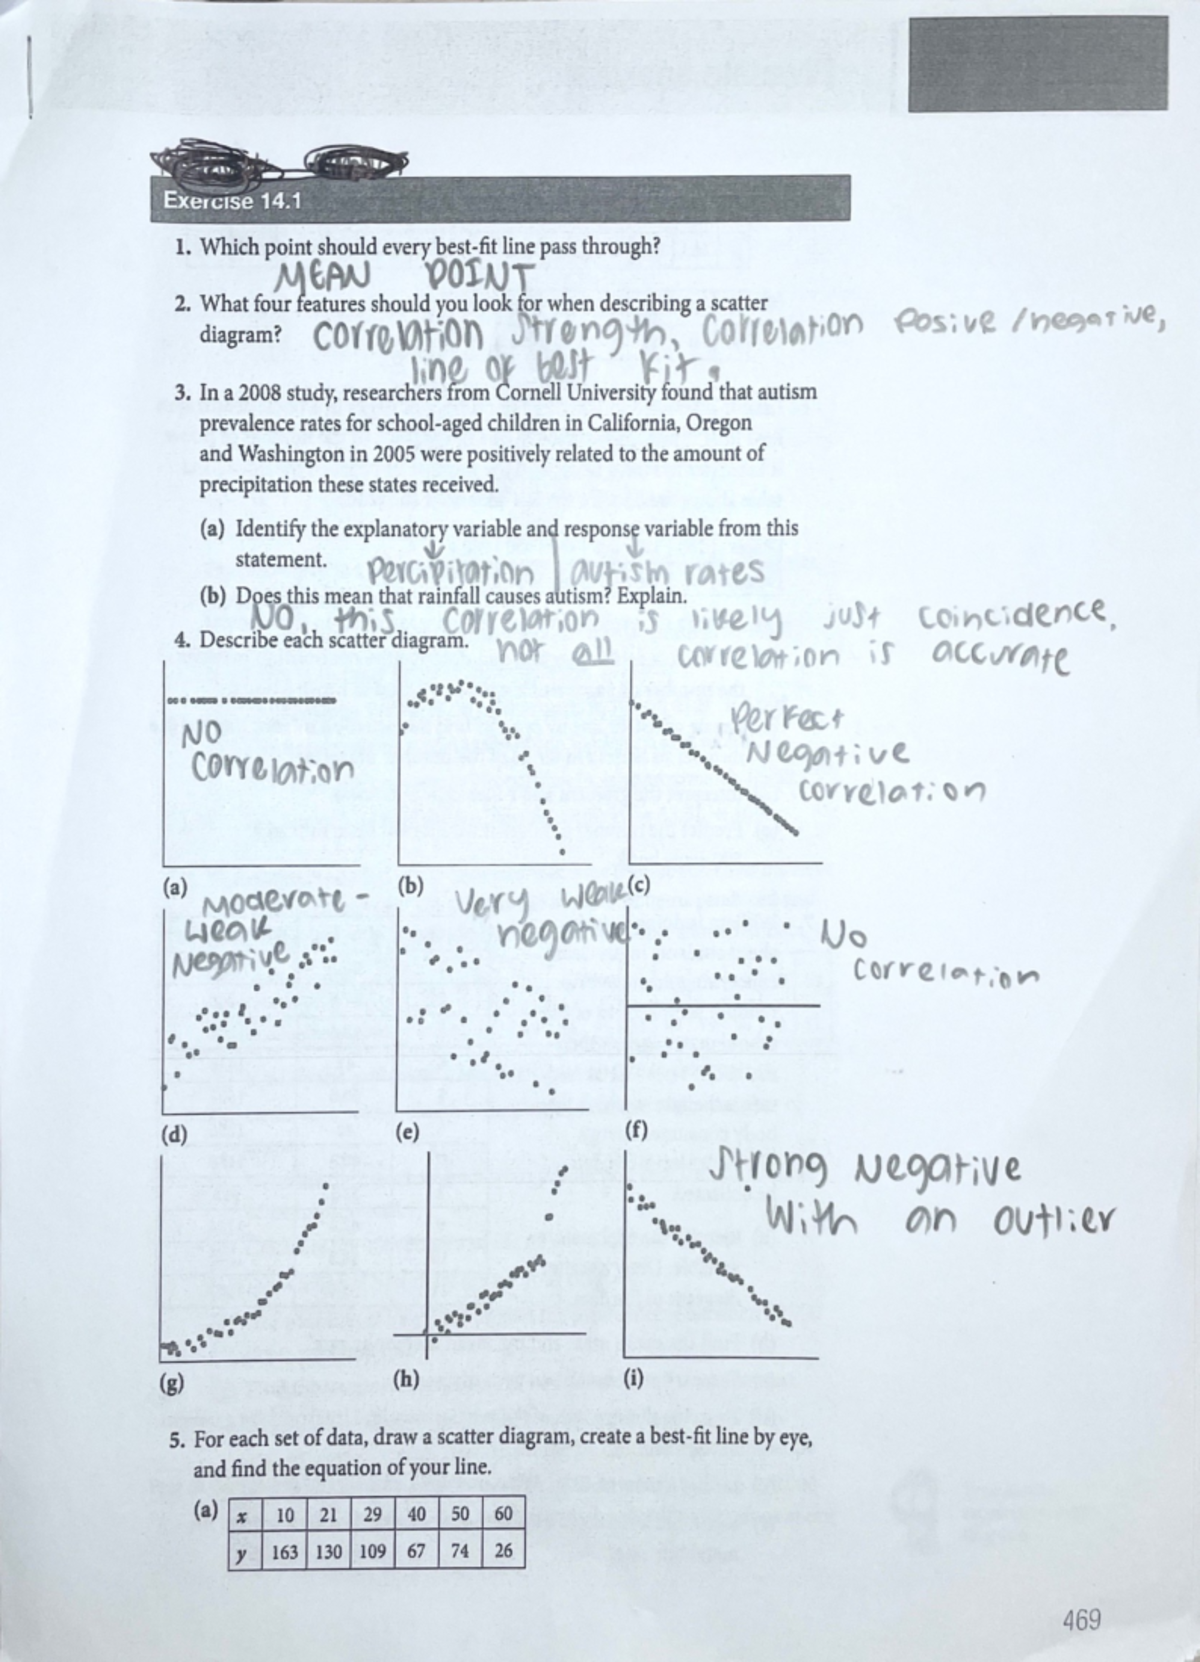 Exercise 14.1
1. Which point should every best-fit line pass through?
MEAN POINT
2. What four features should you look for when describing a scatter
diagram? correlation strength, correlation Posive / negative,
line of best fit.
3. In a 2008 study, researchers from Cornell University found that autism
prevalence rates for school-aged children in California, Oregon
and Washington in 2005 were positively related to the amount of
precipitation these states received.
(a) Identify the explanatory variable and response variable from this
statement. Percipitation | autism rates
(b) Does this mean that rainfall causes autism? Explain.
NO, this correlation is likely just coincidence,
4. Describe each scatter diagram. not all correlation is accurate
NO
correlation
Perfect
Negative
correlation
(a) (b) (c)
Moderate -
weak
Negative
Very weak
negative
No
correlation
(d) (e) (f)
Strong Negative
With an outlier
(g) (h) (i)
5. For each set of data, draw a scatter diagram, create a best-fit line by eye,
and find the equation of your line.
(a) x 10 21 29 40 50 60
y 163 130 109 67 74 26
469